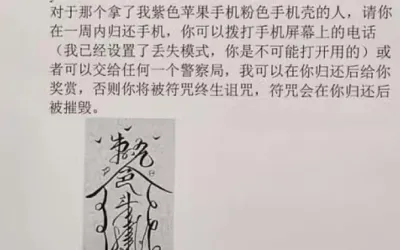 对于那个拿了我紫色苹果手机粉色手机壳的人，请你
在一周内归还手机，你可以拨打手机屏幕上的电话
（我已经设置了丢失模式，你是不可能打开用的）或
者可以交给任何一个警察局，我可以在你归还后给你
奖赏，否则你将被符咒终生诅咒，符咒会在你归还后
被摧毁。